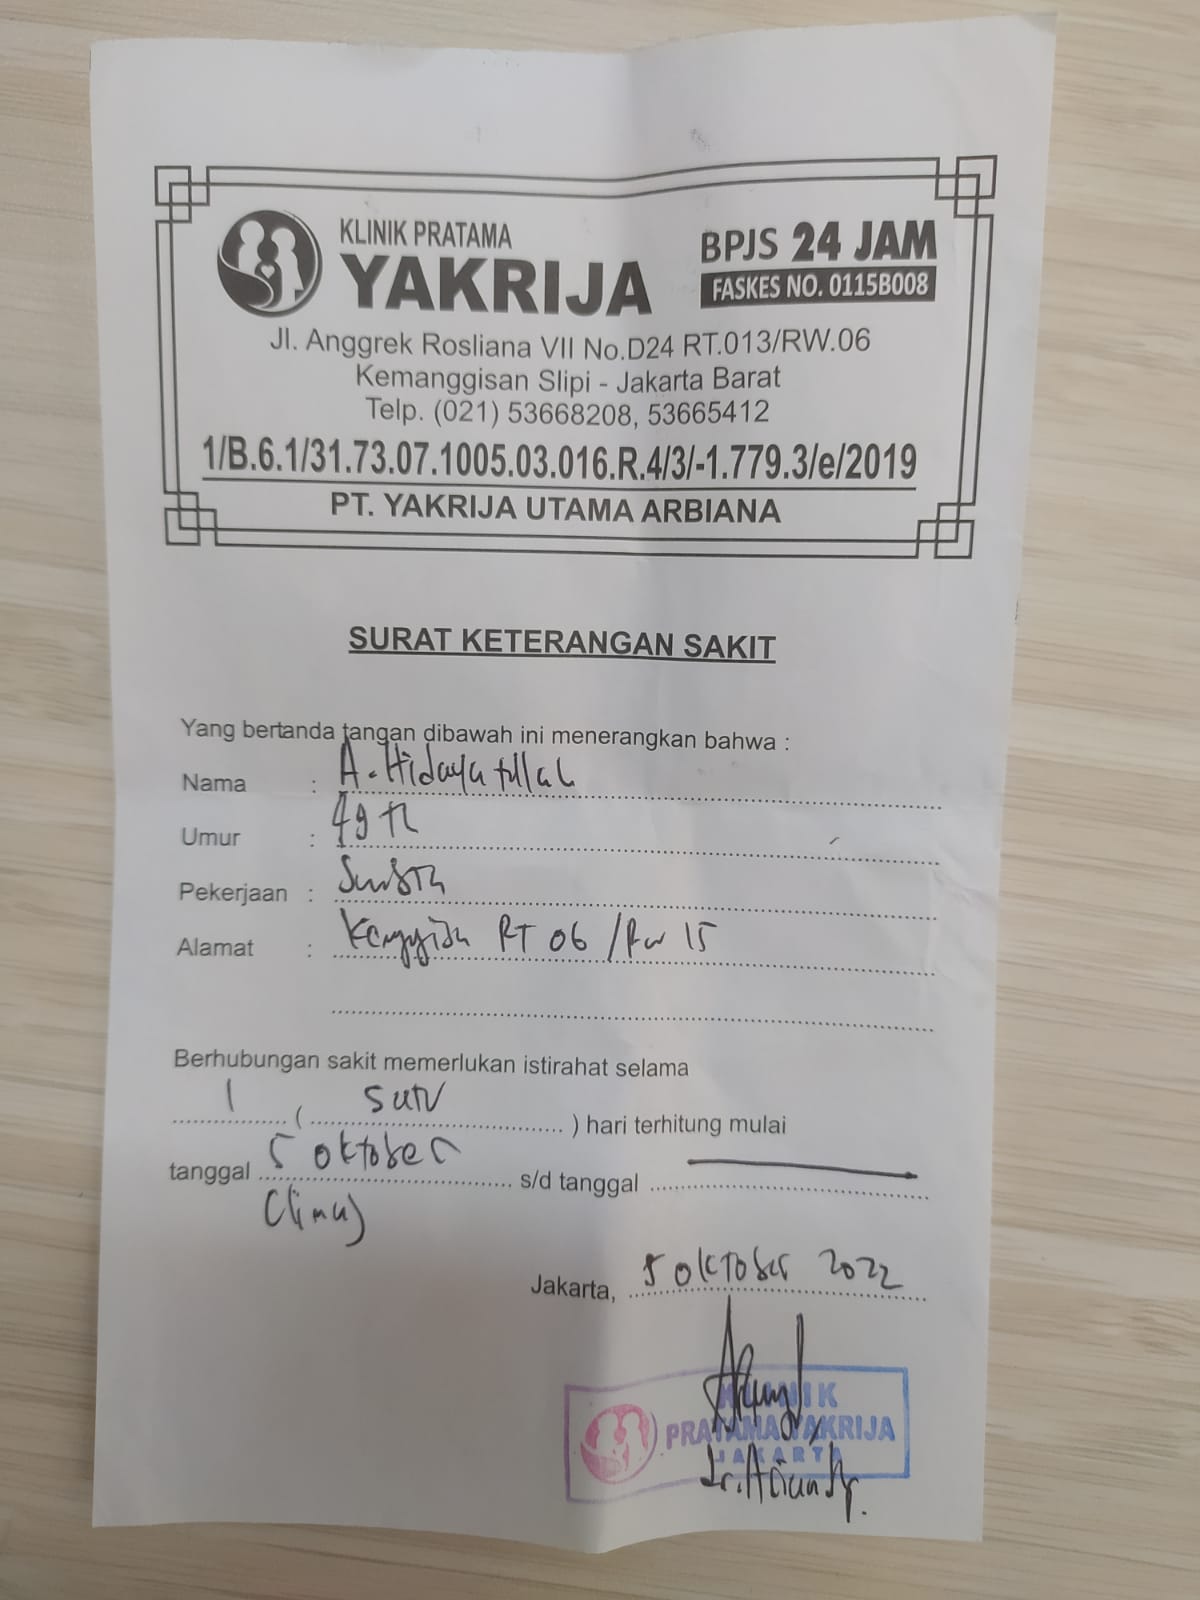 KLINIK PRATAMA
YAKRIJA
BPJS 24 JAM
FASKES NO. 0115B008
Jl. Anggrek Rosliana VII No.D24 RT.013/RW.06
Kemanggisan Slipi - Jakarta Barat
Telp. (021) 53668208, 53665412
1/B.6.1/31.73.07.1005.03.016.R.4/3/-1.779.3/e/2019
PT. YAKRIJA UTAMA ARBIANA
SURAT KETERANGAN SAKIT
Yang bertanda tangan dibawah ini menerangkan bahwa :
Nama : A. Hidayatullah
Umur : 49 th
Pekerjaan :
Alamat : RT 06 / Rw 15
Berhubungan sakit memerlukan istirahat selama
1 ( satu ) hari terhitung mulai
tanggal 5 oktober s/d tanggal
(lima)
Jakarta, 5 oktober 2022
KLINIK
PRATAMA YAKRIJA
JAKARTA